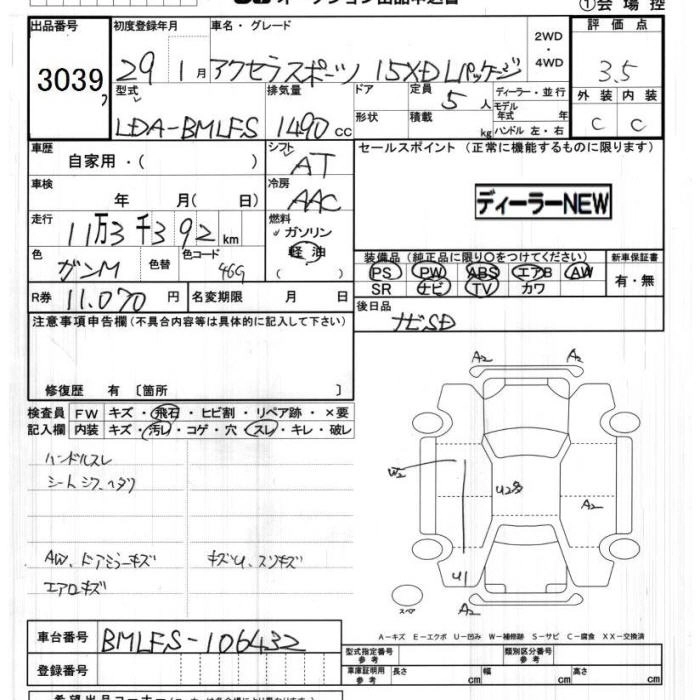 オークション出品申込書
①会場控
出品番号 初度登録年月 車名・グレード 2WD・4WD 評価点
3039 29 1月 アクセラスポーツ 15XD Lパッケージ 3.5
型式 排気量 ドア 定員 5人 ディーラー・並行 外装 内装
LDA-BMLFS 1490 cc 形状 積載 kg モデル年式 年 ハンドル 左・右 C C
車歴 自家用・( ) シフト AT セールスポイント (正常に機能するものに限ります)
車検 年 月( 日) 冷房 AAC
ディーラーNEW
走行 11万3千392km 燃料 ガソリン 軽油 ( )
装備品 (純正品に限り○をつけてください) 新車保証書
色 ガンM 色替 色コード 46G
PS PW ABS エアB AW 有・無
SR ナビ TV カワ
R券 11.070円 名変期限 月 日
後日品 ナビSD
注意事項申告欄(不具合内容等は具体的に記入して下さい)
修復歴 有 〔箇所 〕
検査員 FW キズ・飛石・ヒビ割・リペア跡・×要
記入欄 内装 キズ・汚レ・コゲ・穴・スレ・キレ・破レ
ハンドルスレ
シートシワ、ヘタリ
A2 A2
W2 U2多 A2
AW、ドアミラーキズ キズU、スリキズ
エアロキズ
U1
スペア A2
A-キズ E-エクボ U-凹み W-補修跡 S-サビ C-腐食 XX-交換済
車台番号 BMLFS-106432
型式指定番号 参考 類別区分番号 参考
登録番号
車庫証明用 参考 長さ cm 幅 cm 高さ cm